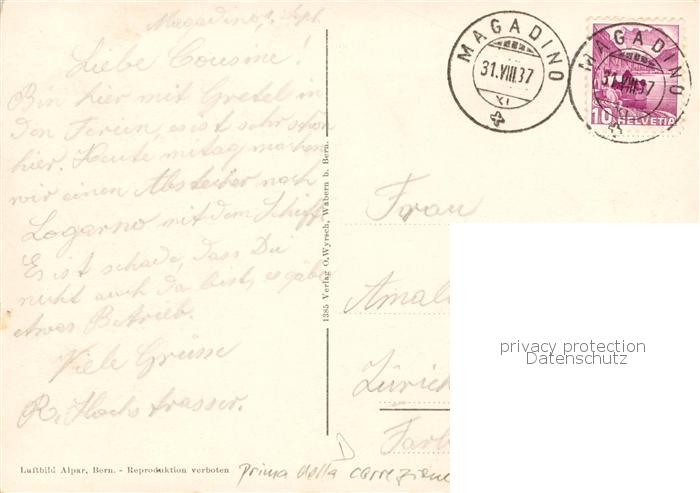 Magadino, 1. Sept.
Liebe Cousine!
Bin hier mit Gretel in
den Ferien, es ist sehr schön
hier. Heute mitag machen
wir einen Abstecher nach
Logarno mit dem Schiff.
Es ist schade, dass Du
nicht auch da bist, es gäbe
etwas Betrieb.
Viele Grüsse
R. Hochstrasser.
1385 Verlag O. Wyrsch, Wabern b. Bern.
MAGADINO
31.VIII.37
XI
MAGADINO
31.VIII.37
10 HELVETIA
Frau
Amali
Zürich
Farb
privacy protection
Datenschutz
Luftbild Alpar, Bern. - Reproduktion verboten
prima della correzione